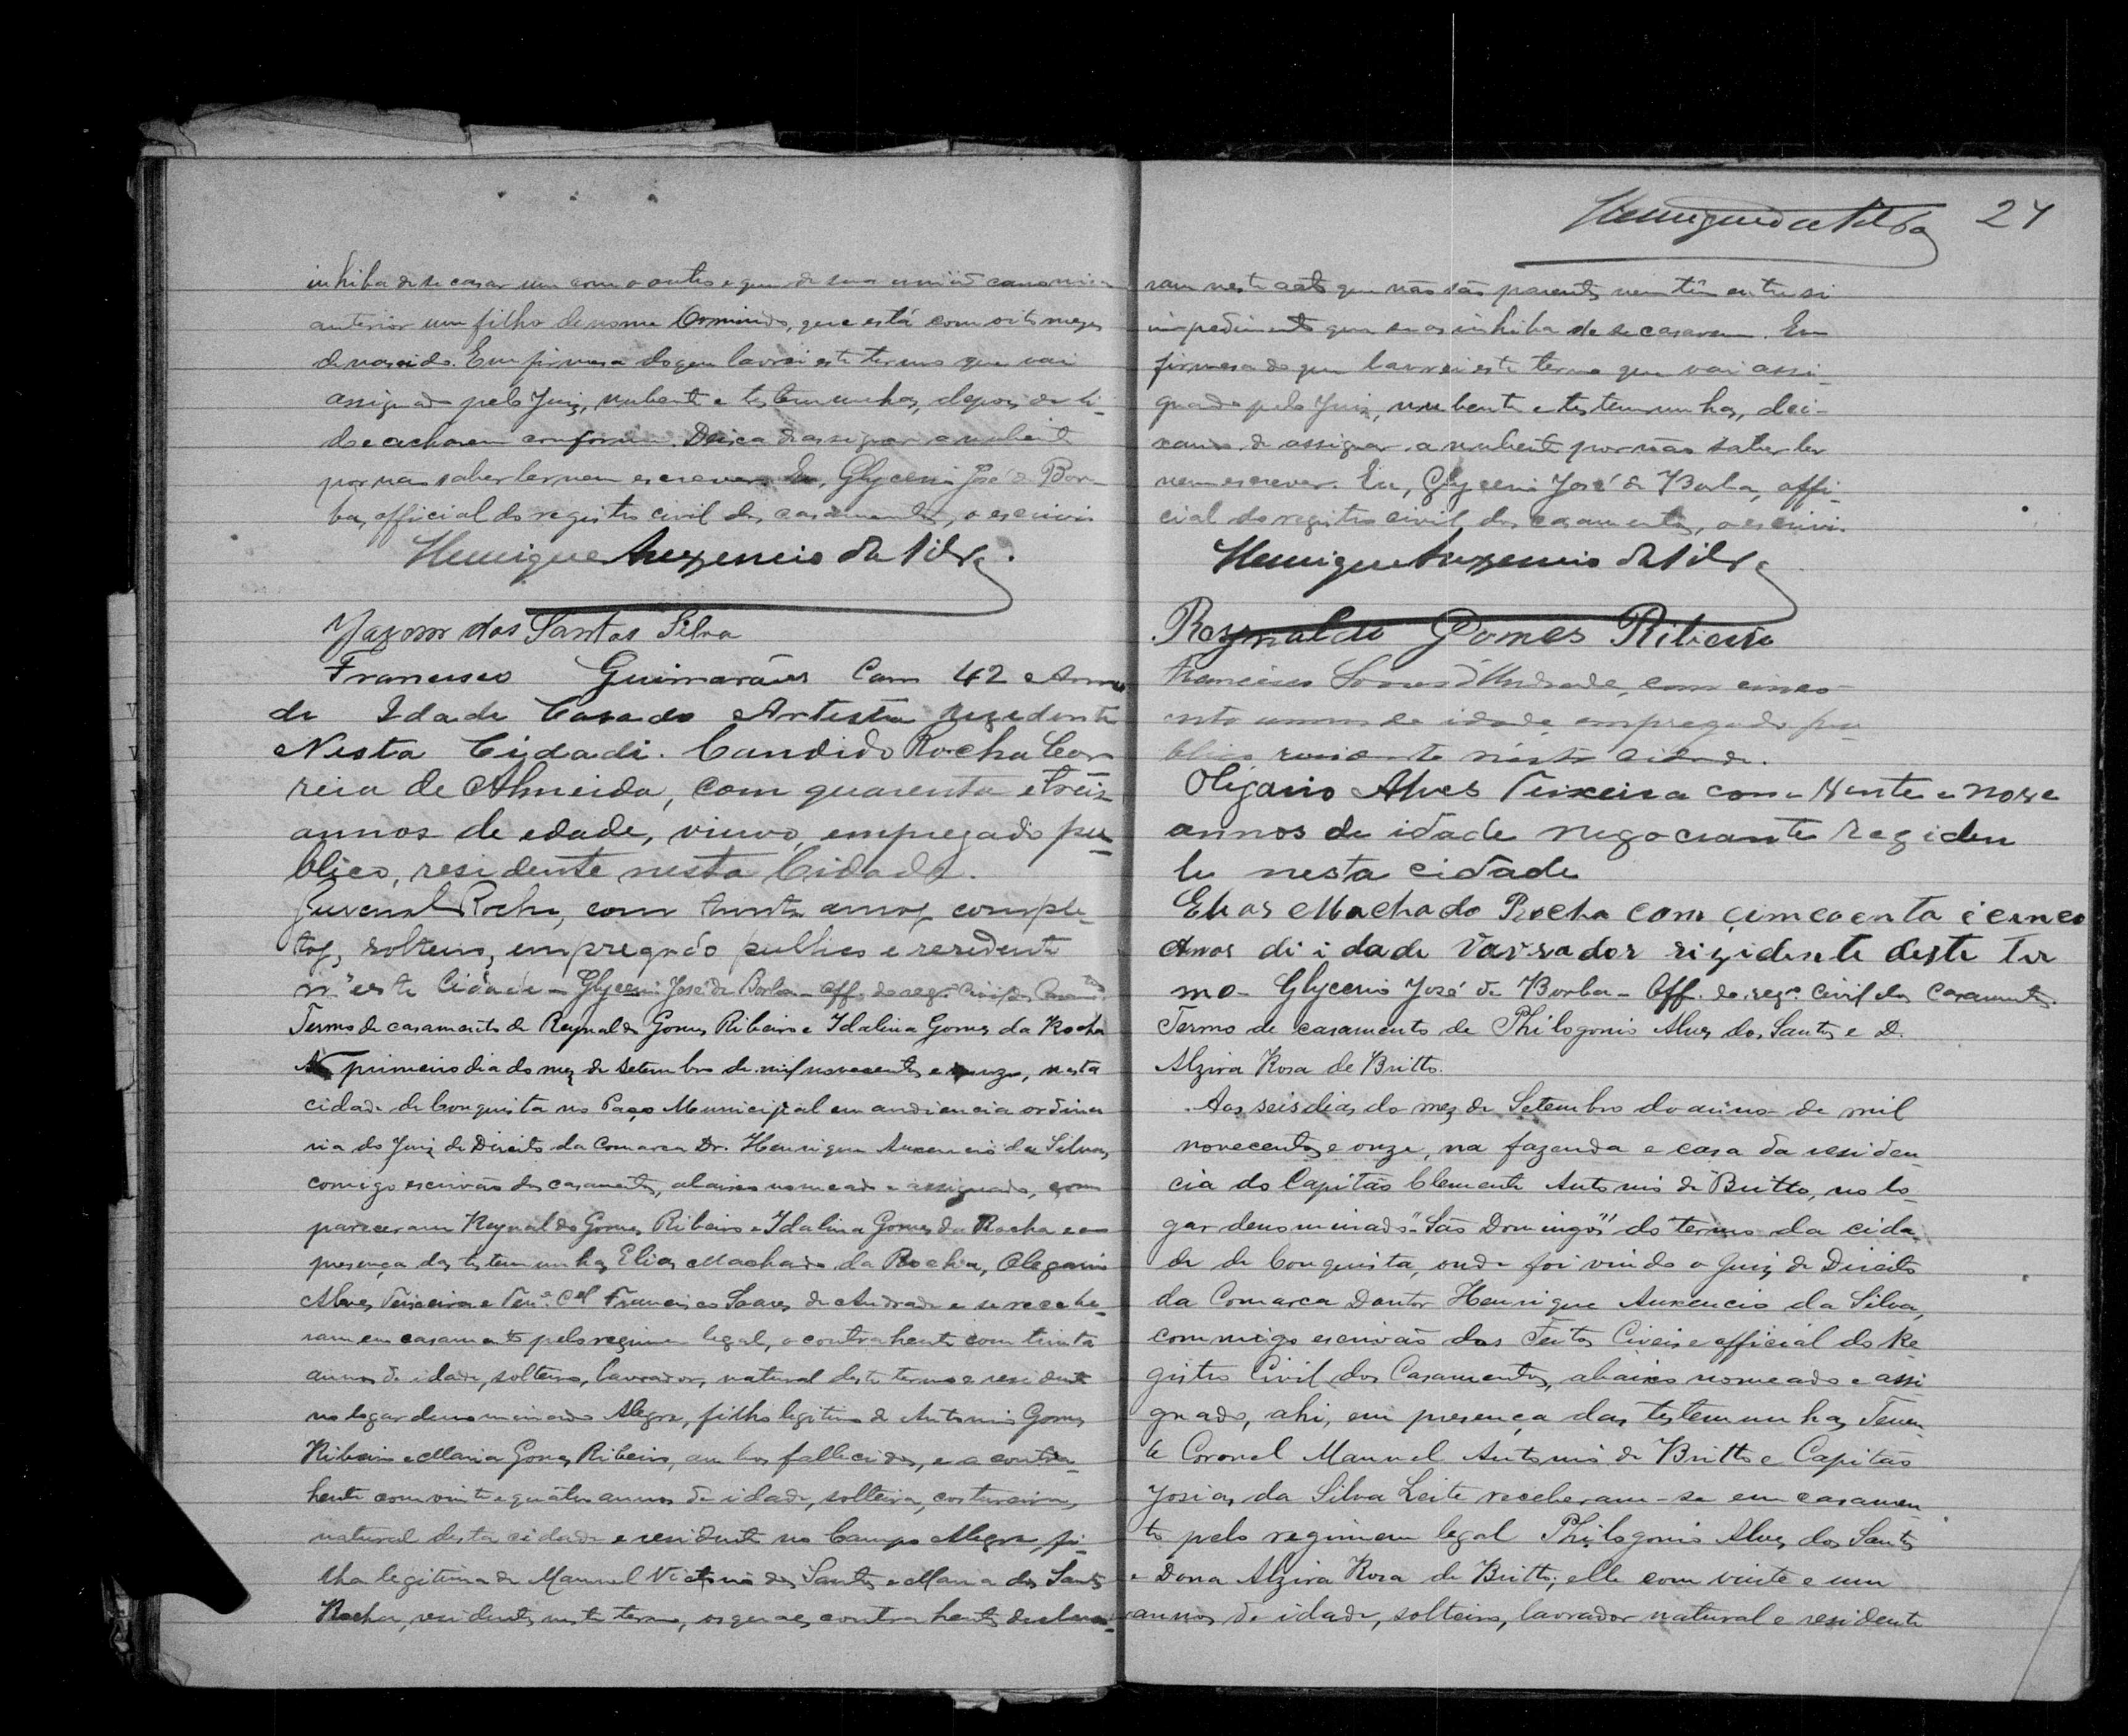 inhiba de se casar um com o outro e que de sua união canonica
anterior um filho de nome Orminio, que está com oito mezes
de nascido. Em firmesa do que lavrei este termo que vai
assignado pelo Juiz, nubente e testemunhas, depois de li-
do e acharem conforme. Deixa de assignar a nubente
por não saber ler nem escrever. Eu, Glycerio José de Bor-
ba, official do registro civil dos casamentos, o escrivi
Henrique Auxencio da Silva.
Jazom dos Santos Silva
Francisco Guimarães Com 42 Annos
de Idade Casado Artista rezedente
Nesta Cidadi. Candido Rocha Cor
reia de Almeida, com quarenta e treis
annos de edade, viuvo, empregado pu-
blico, residente nesta Cidade.
Juvenal Rocha, com trinta annos comple-
tos, solteiro, empregado publico e residente
n'esta Cidade - Glycerio José de Borba - Off. do regº Civil dos Casamtos
Termo de casamento de Reynaldo Gomes Ribeiro e Idalina Gomes da Rocha
Ao primeiro dia do mez de Setembro de mil novecentos e onze, nesta
cidade de Conquista no Paço Municipal em audiencia ordina
ria do Juiz de Direito da Comarca Dr. Henrique Auxencio da Silva,
comigo escrivão dos casamentos, abaixo nomeado e assignado, com
pareceram Reynaldo Gomes Ribeiro e Idalina Gomes da Rocha e em
presença das testemunhas Elias Machado da Rocha, Olegario
Alves Teixeira e Tene. Cel Francisco Soares de Andrade e se recebe-
ram em casamento pelo regimen legal, o contrahente com trinta
annos de idade, solteiro, lavrador, natural deste termo e residente
no logar denominado Alegre, filho legitimo de Antonio Gomes
Ribeiro e Maria Gomes Ribeiro, ambos fallecidos, e a contra-
hente com vinte e quatro annos de idade, solteira, costureira,
natural desta cidade e residente no Campo Alegre, fi-
lha legitima de Manuel Victorio dos Santos e Maria dos Santos
Rocha, residentes neste termo, os quaes contrahentes declara-
Henrique da Silva 24
ram neste acto que não são parentes nem têm entre si
impedimento que os inhiba de se casarem. Em
firmesa do que lavrei este termo que vai assi-
gnado pelo Juiz, nubente e testemunhas, dei-
xando de assignar a nubente por não saber ler
nem escrever. Eu, Glycerio José de Borba, offi-
cial do registro civil dos casamentos, o escrivi.
Henrique Auxencio da Silva
Reynaldo Gomes Ribeiro
Francisco Soares d'Andrade, com cinco
enta annos de idade, empregado pu-
blico residente nésta cidade.
Oligario Alves Teixeira com vente e nove
annos de idade negociante reziden
te nesta cidade
Elias Machado Rocha com cimcoenta e cinco
Anos di idade Lavrador rizidente deste ter
mo - Glycerio José de Borba - Off. do regº Civil dos Casamentos.
Termo de casamento de Philogonio Alves dos Santos e D.
Alzira Rosa de Britto.
Aos seis dias do mez de Setembro do anno de mil
novecentos e onze, na fazenda e casa da residen-
cia do Capitão Clemente Antonio de Britto, no lo-
gar denominado "São Domingos" do termo da cida
de de Conquista, onde foi vindo o Juiz de Direito
da Comarca Doutor Henrique Auxencio da Silva,
commigo escrivão dos Feitos Civeis e official do Re
gistro Civil dos Casamentos, abaixo nomeado e assi
gnado, ahi, em presença das testemunhas Tenen-
te Coronel Manuel Antonio de Britto e Capitão
Josias da Silva Leite receberam-se em casamen-
to pelo regimem legal Philogonio Alves dos Santos
e Dona Alzira Rosa de Britto; elle com vinte e um
annos de idade, solteiro, lavrador natural e residente